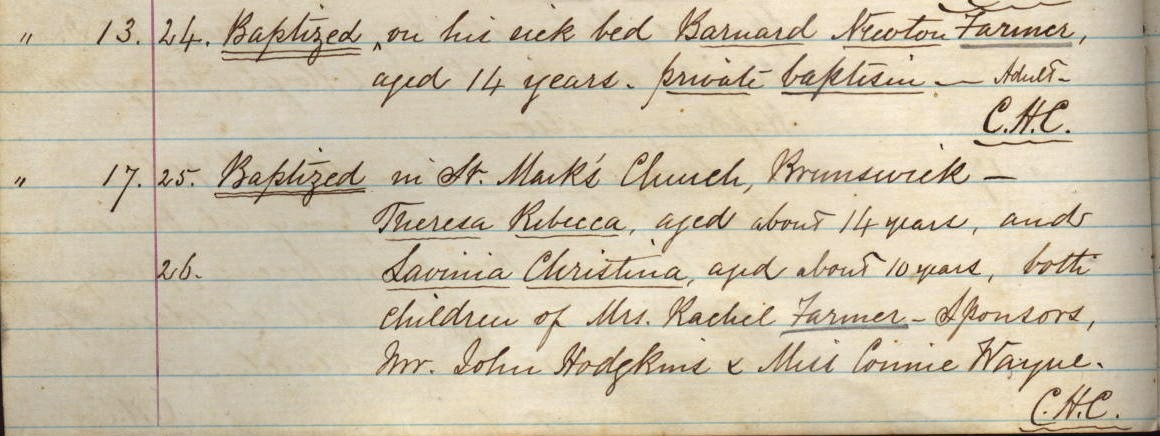 " 13. 24. Baptized on his sick bed Barnard Newton Farmer,
aged 14 years. private baptism — Adult —
C.H.C.
" 17. 25. Baptized in St. Mark's Church, Brunswick —
Theresa Rebecca, aged about 14 years, and
26. Lavinia Christina, aged about 10 years, both
children of Mrs. Rachel Farmer — Sponsors,
Mr. John Hodgkins & Miss Connie Wayne.
C.H.C.